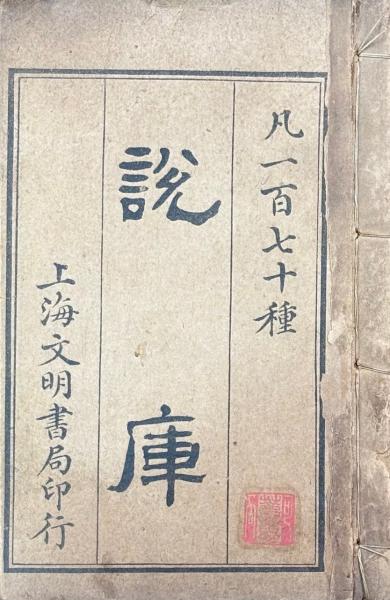 凡一百七十種
說庫
上海文明書局印行